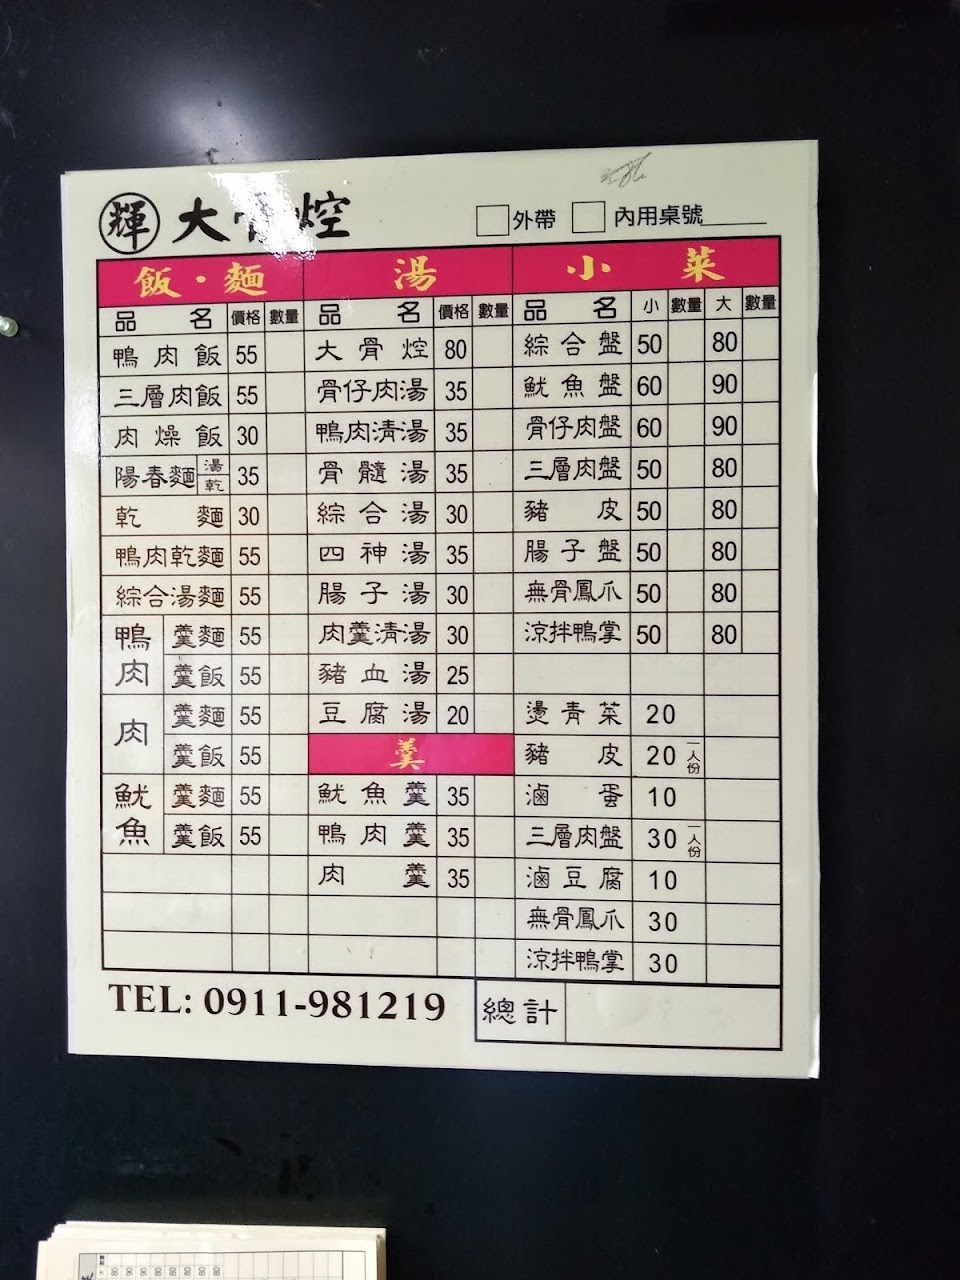 輝 大骨焢 □外帶 □內用桌號
飯・麵
品名 價格 數量
鴨肉飯 55
三層肉飯 55
肉燥飯 30
陽春麵 湯 乾 35
乾麵 30
鴨肉乾麵 55
綜合湯麵 55
鴨肉 羹麵 55
羹飯 55
肉 羹麵 55
羹飯 55
魷魚 羹麵 55
羹飯 55
湯
品名 價格 數量
大骨焢 80
骨仔肉湯 35
鴨肉清湯 35
骨髓湯 35
綜合湯 30
四神湯 35
腸子湯 30
肉羹清湯 30
豬血湯 25
豆腐湯 20
羹
魷魚羹 35
鴨肉羹 35
肉羹 35
小菜
品名 小 數量 大 數量
綜合盤 50 80
魷魚盤 60 90
骨仔肉盤 60 90
三層肉盤 50 80
豬皮 50 80
腸子盤 50 80
無骨鳳爪 50 80
涼拌鴨掌 50 80
燙青菜 20
豬皮 20 一人份
滷蛋 10
三層肉盤 30 一人份
滷豆腐 10
無骨鳳爪 30
涼拌鴨掌 30
TEL: 0911-981219
總計